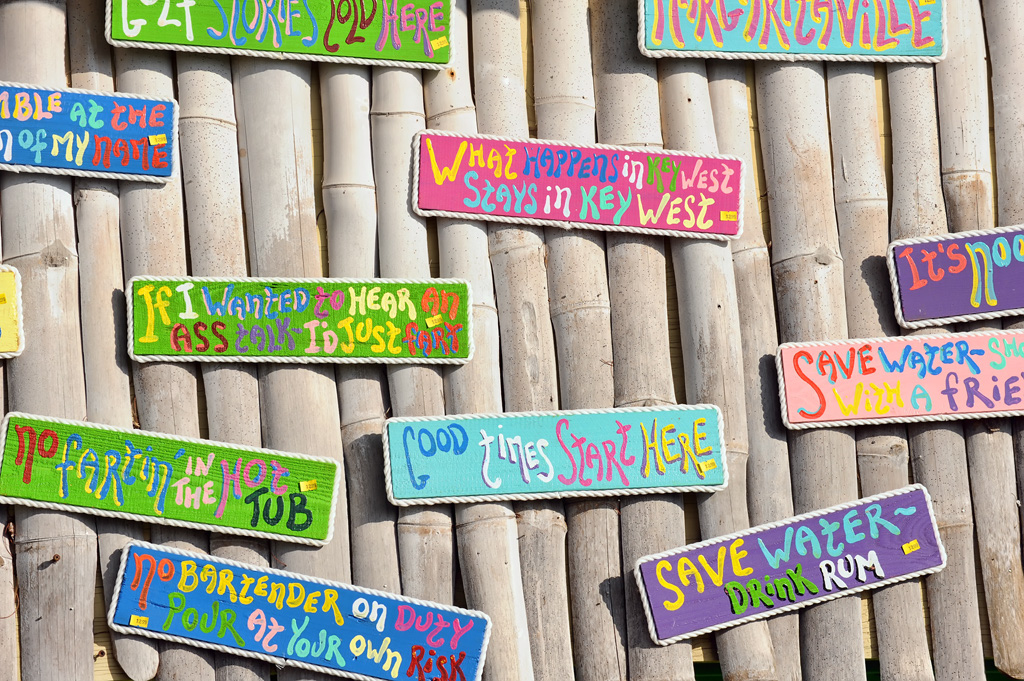 GOLF STORIES TOLD HERE
MARGARITAVILLE
AT THE
OF MY NAME
WHAT HAPPENS in KEY WEST
STAYS in KEY WEST
IT'S
IF I WANTED to HEAR AN
ASS tALK- I'D JUST FART
SAVE WATER-
WITH A FRIE
NO FARTIN' IN
THE HOT
TUB
GOOD tiMES START HERE
SAVE WATER-
DRINK RUM
NO BARTENDER ON DUTY
POUR AT YOUR OWN RISK